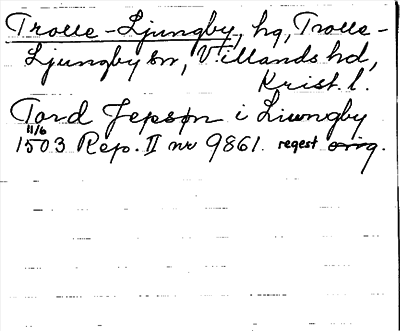 Trolle-Ljungby, hg, Trolle-
Ljungby sn, Villands hd,
Krist. l.
Tord Jepson i Liwngby
11/6
1503 Rep. II nr 9861. regest orig.